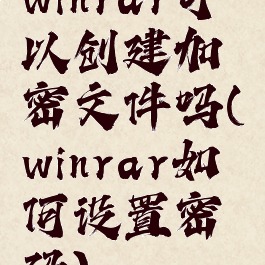 winrar可
以创建加
密文件吗(
winrar如
何设置密
码)